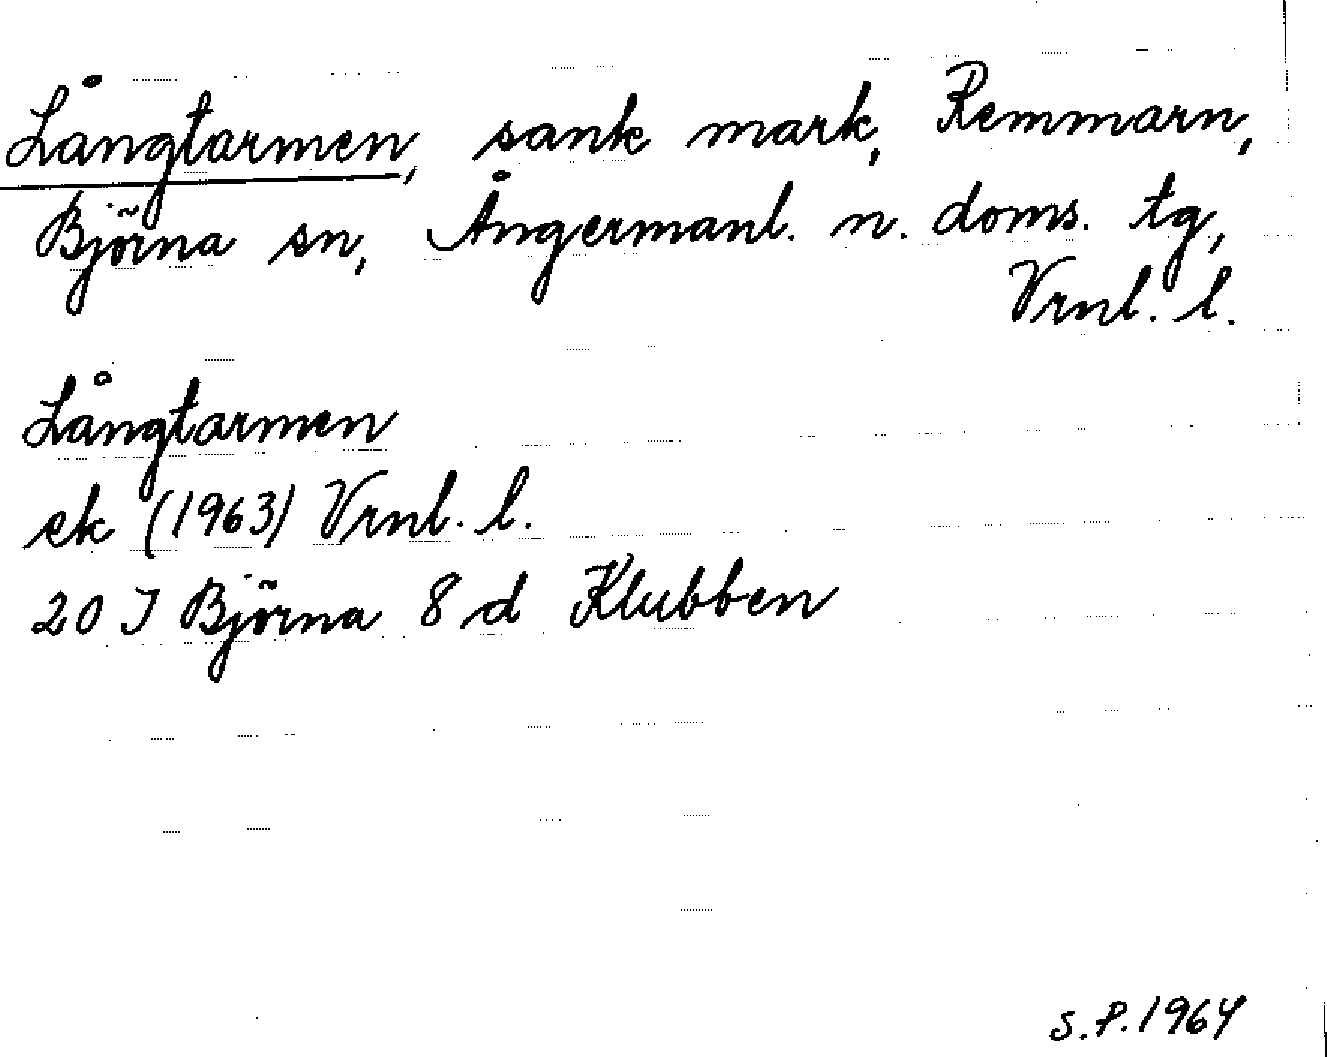 Långtarmen, sank mark, Remmarn,
Björna sn, Ångermanl. n. doms. tg,
Vrnl. l.
Långtarmen
ek (1963) Vrnl. l.
20 J Björna 8 d Klubben
S.P. 1964